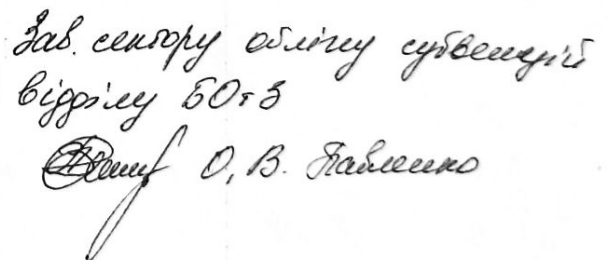 Зав. сектору обліку субвенцій
відділу БОтЗ
О.В. Павленко